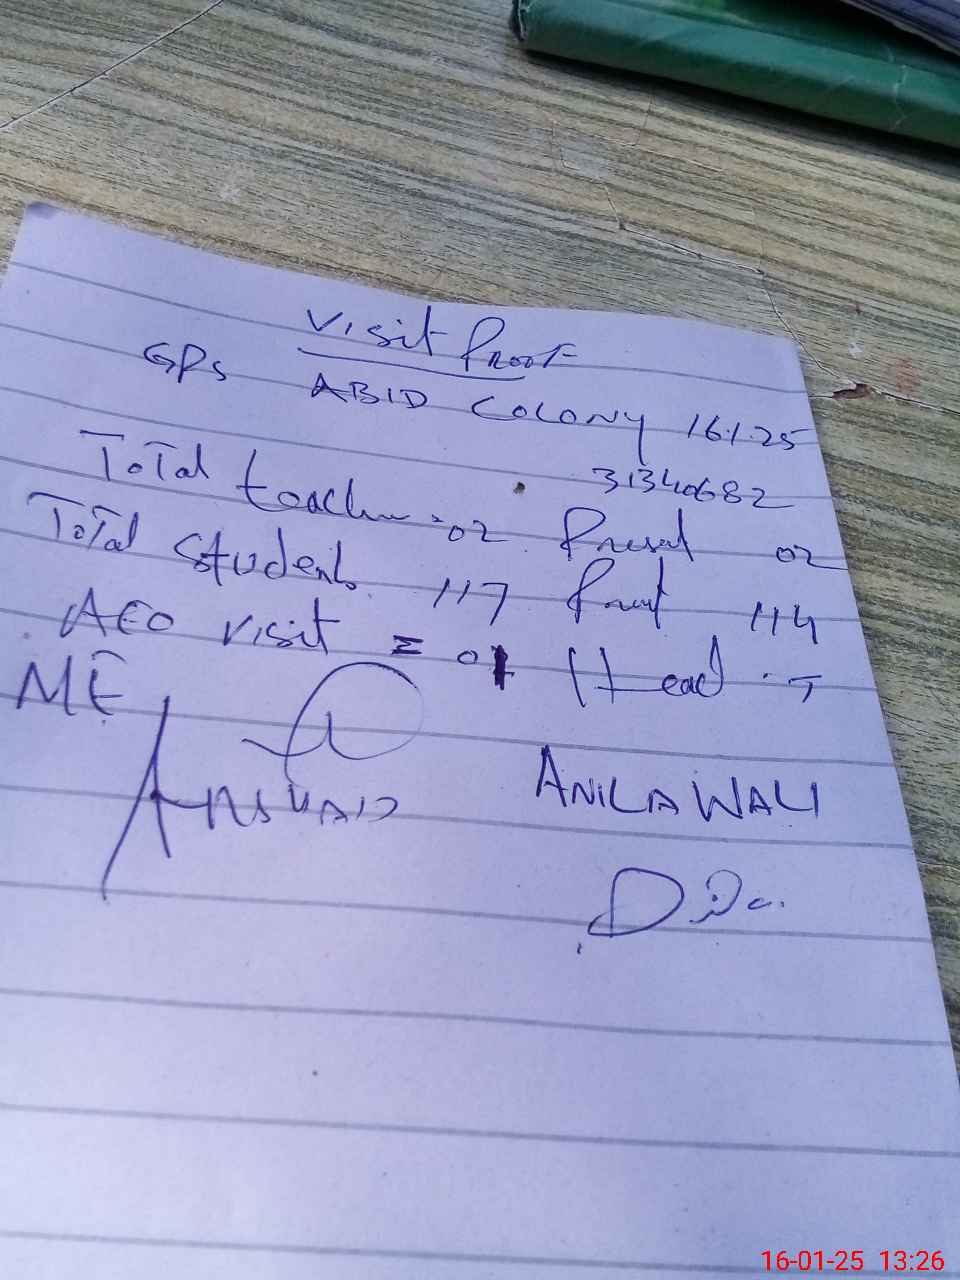 Visit Proof
GPS ABID COLONY 16.1.25
31340682
Total teacher = 02 Present 02
Total Students 117 Present 114
AEO visit = 01 Head : T
ME
ANILA WALI
16-01-25 13:26